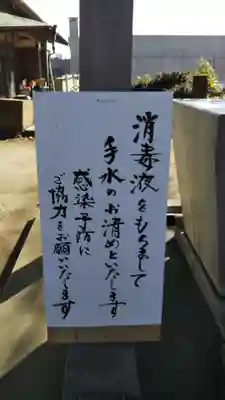 消毒液をもちまして
手水のお清めといたします
感染予防に
ご協力をお願いいたします